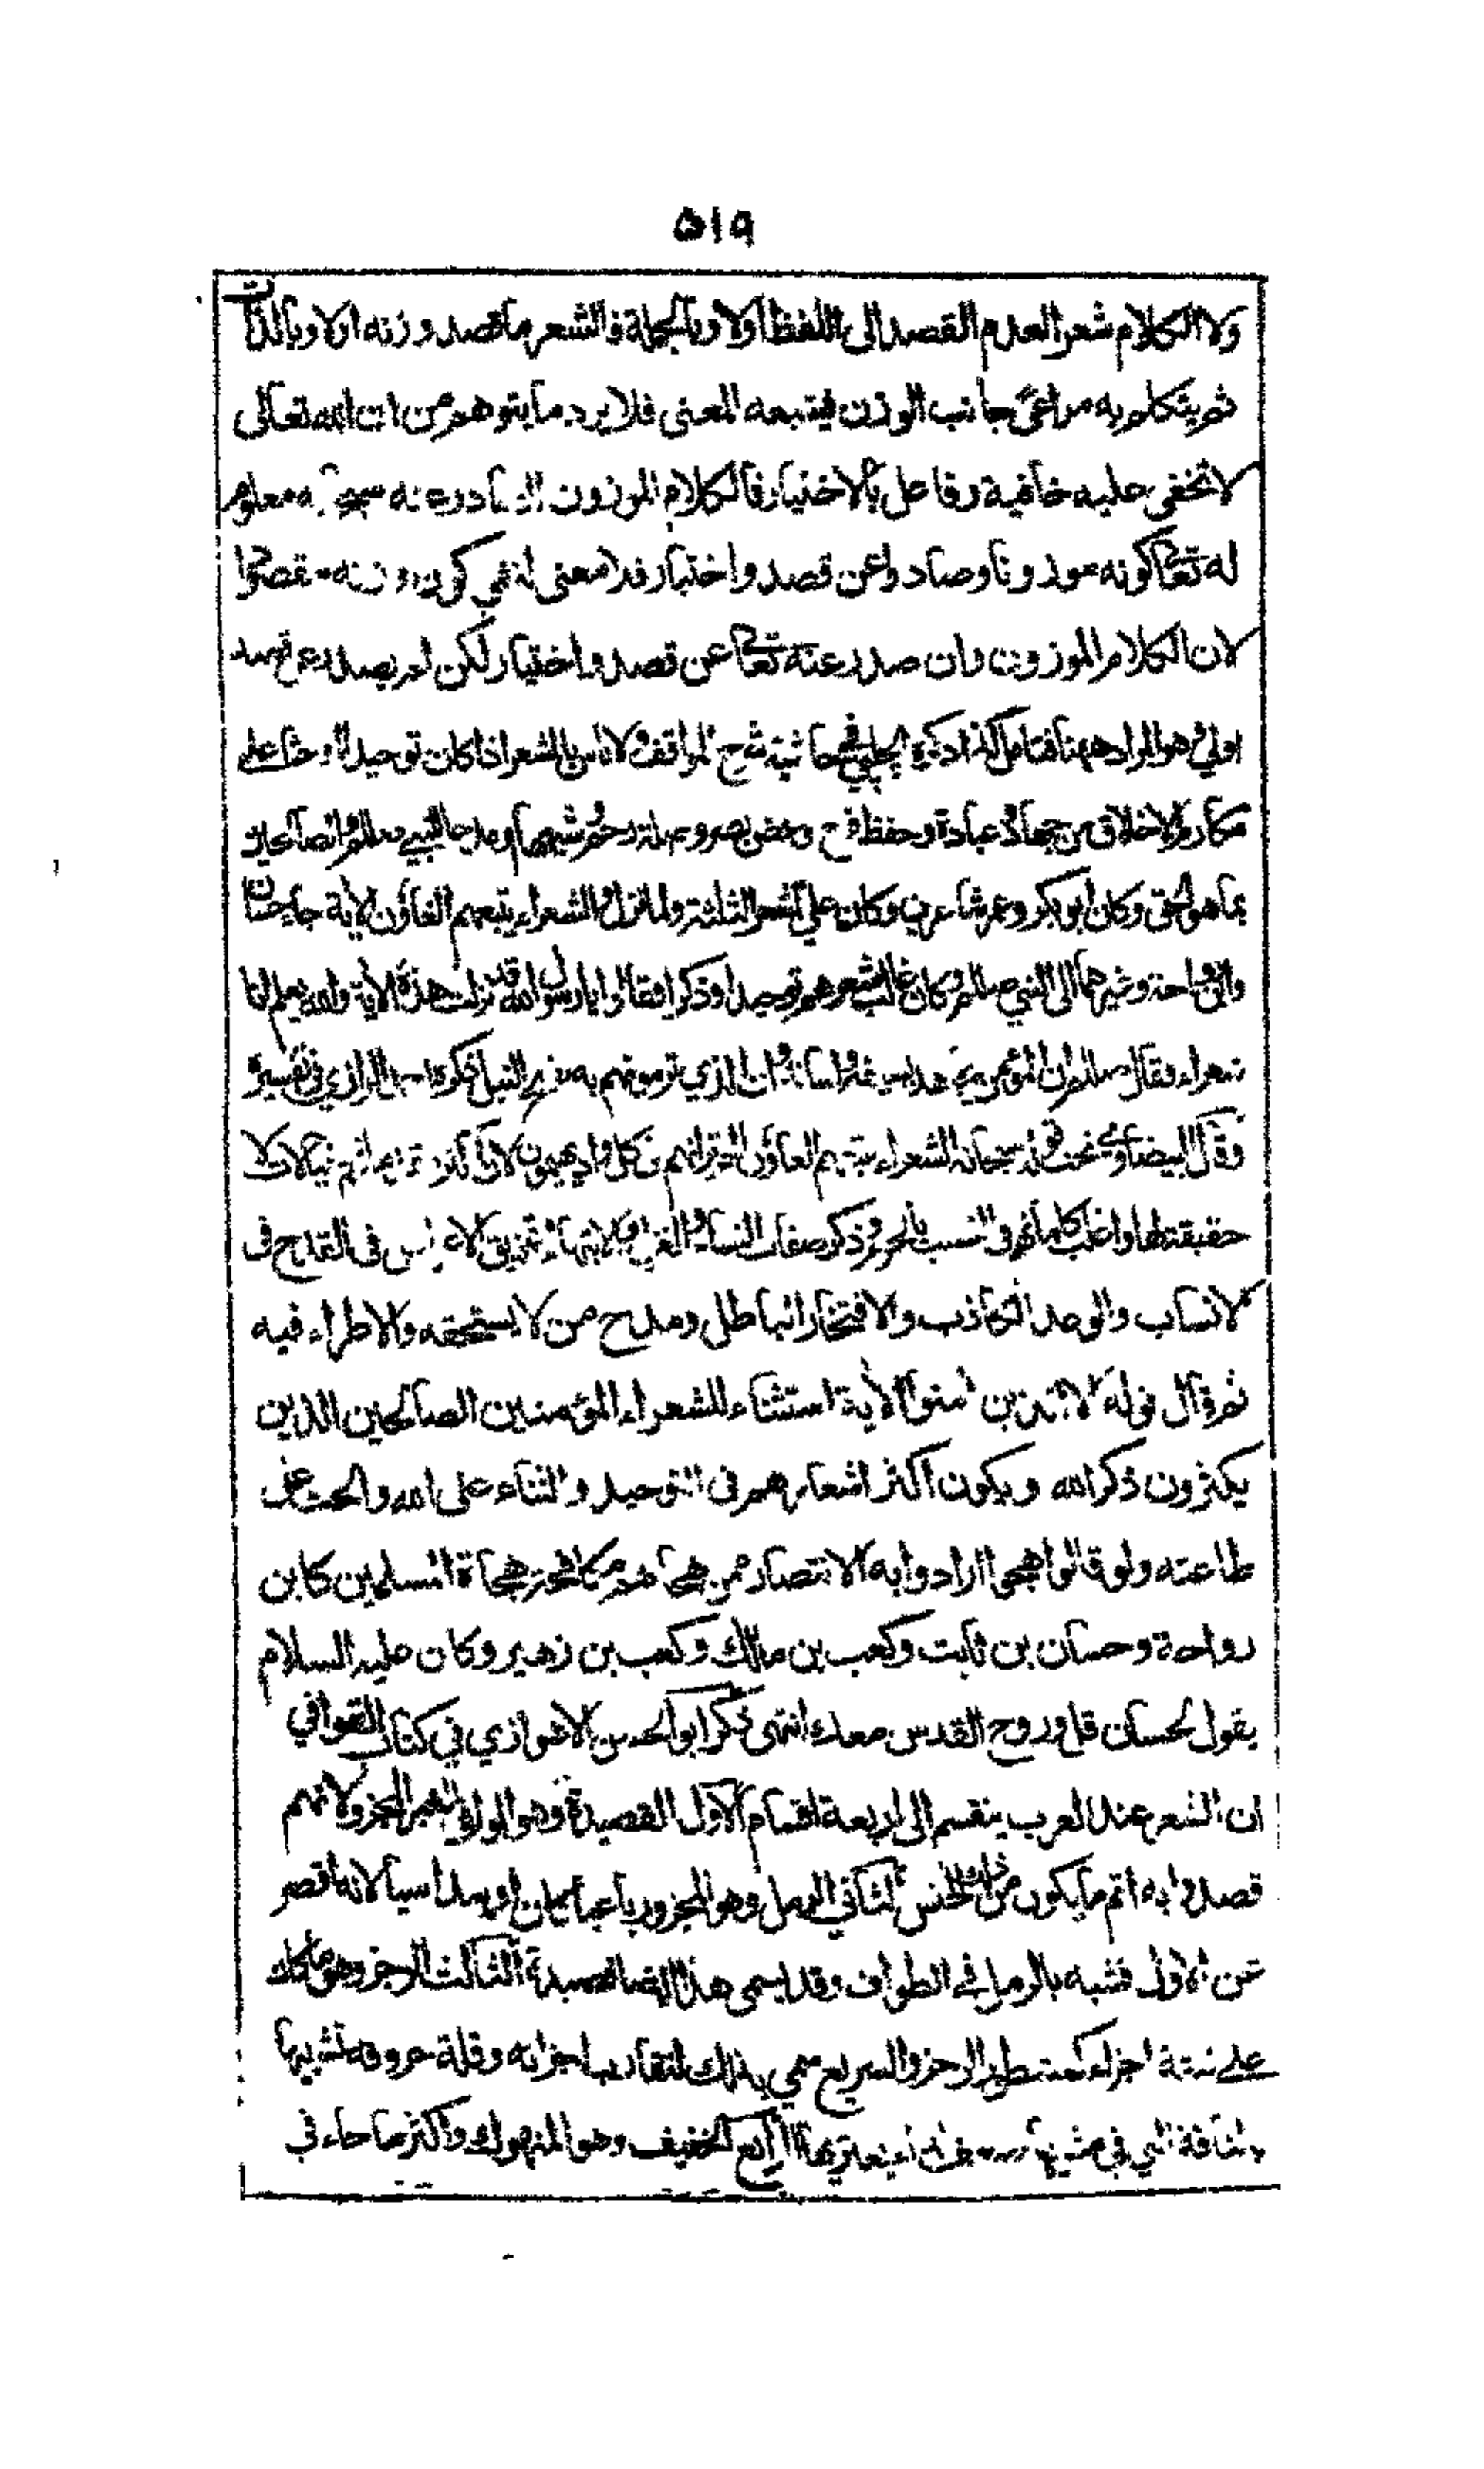 ٥١٩
ولا الكلام شعرا لعدم القصد الى اللفظ اولا وبالجملة فالشعر ما قصد وزنه اولا وبالذات
ثم يتكلم به مراعى جانب الوزن فيتبعه المعنى فلا يرد ما يتوهم من ان الله تعالى
لا تخفى عليه خافية وفاعل بالاختيار فالكلام الموزون الصادر عنه سبحانه معلوم
له تعالى كونه موزونا وصادرا عن قصد واختيار فلا معنى لنفي كون وزنه مقصودا
لان الكلام الموزون وان صدر عنه تعالى عن قصد واختيار لكن لم يصدر عن قصد
اولي وهو المراد ههنا فتامل كذا ذكره الچلپي في حاشية شرح المواقف ولا باس بالشعر اذا كان توحيدا او حثا على
مكارم الاخلاق من جهاد وعبادة وحفظ فرج وغض بصر وصلة رحم وشبهها او مدحا للنبي صللم والصالحين
بما هو الحق وكان ابو بكر وعمر شاعرين وكان علي اشعر الثلثة ولما نزل والشعراء يتبعهم الغاؤن الاية جاء حسان
وابن رواحة وغيرهما الى النبي صللم وكان غالب شعرهم توحيدا وذكرا فقالوا يا رسول الله قد نزلت هذه الاية والله يعلم انا
شعراء فقال صللم ان المؤمن يجاهد بسيفه ولسانه وان الذي ترمونهم به نضح النبل ذكره الرازي في تفسيره
وقال البيضاوي تحت قوله سبحانه الشعراء يتبعهم الغاؤن الم تر انهم في كل واد يهيمون لان اكثر خيالات لا
حقيقة لها واغلب كلماتهم في النسيب بالحرم وذكر صفات النساء والغزل والابتهار وتمزيق الاعراض في القدح في
الانساب والوعد الكاذب والافتخار الباطل ومدح من لا يستحقه والاطراء فيه
ثم قال قوله الا الذين امنوا الاية استثناء للشعراء المؤمنين الصالحين الذين
يكثرون ذكر الله ويكون اكثر اشعارهم في التوحيد والثناء على الله والحث على
طاعته ولو قالوا هجوا ارادوا به الانتصار ممن هجاهم مكافحة هجاة المسلمين كابن
رواحة وحسان بن ثابت وكعب بن مالك وكعب بن زهير وكان عليه السلام
يقول لحسان قل وروح القدس معك انتهى ذكر ابو الحسن الاهوازي في كتاب القوافي
ان الشعر عند العرب ينقسم الى اربعة اقسام الاول القصيدة وهو الوافي الغير المجزو لانهم
قصدوا به اتم ما يكون من ذلك الجنس الثاني الرمل وهو المجزو رباعيا كان او سداسيا لانه اقصر
عن الاول فشبه بالرمل في الطواف وقد يسمى هذا ايضا قصيدة الثالث الرجز وهو ما كان
على ثلثة اجزاء كمشطور الرجز والسريع سمي بذلك لتقارب اجزائه وقلة حروفه تشبيها
بالناقة التي في مشيها ضعف لداء يعتريها الرابع الخفيف وهو المنهوك واكثر ما جاء في